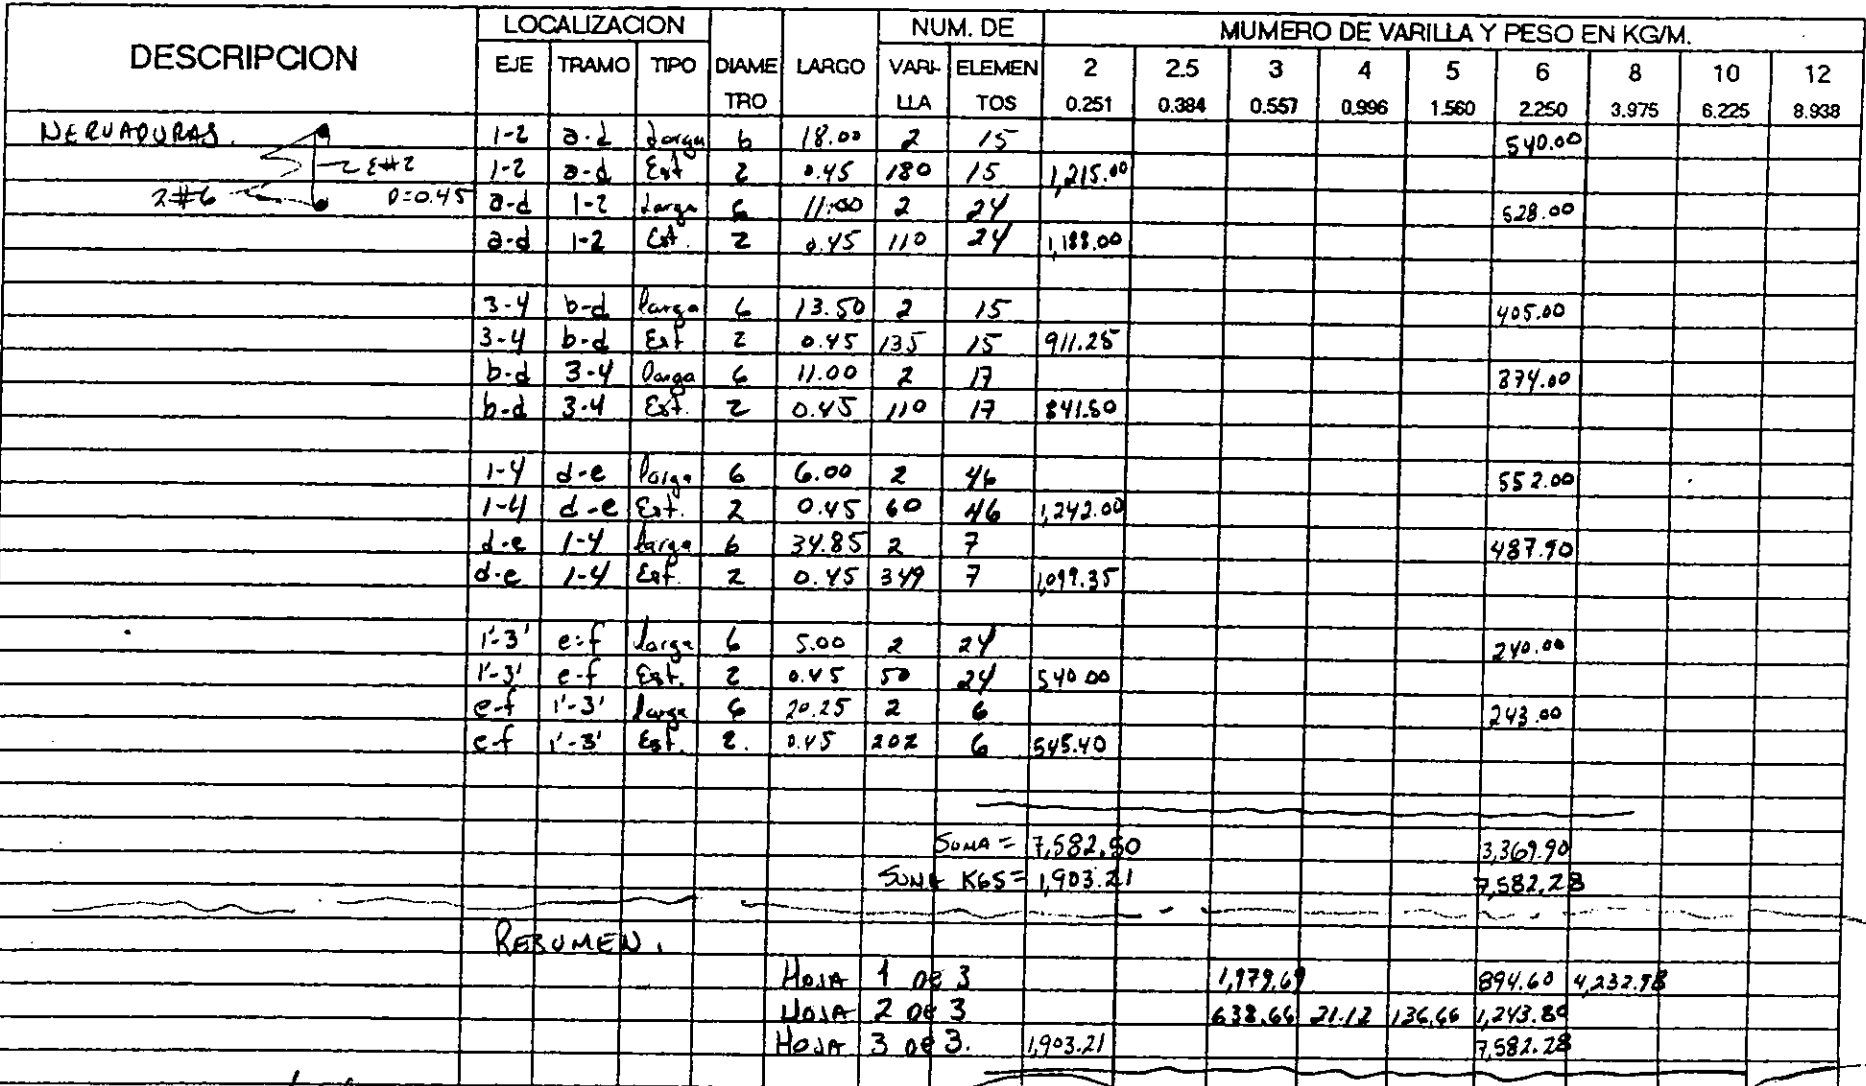 DESCRIPCION LOCALIZACION NUM. DE MUMERO DE VARILLA Y PESO EN KG/M.
EJE TRAMO TIPO DIAME LARGO VARI- ELEMEN 2 2.5 3 4 5 6 8 10 12
TRO LLA TOS 0.251 0.384 0.557 0.996 1.560 2.250 3.975 6.225 8.938
NERVADURAS. 1-2 a-d larga 6 18.00 2 15 540.00
E#2 1-2 a-d Est 2 0.45 180 15 1,215.00
2#6 D=0.45 a-d 1-2 larga 6 11.00 2 24 528.00
a-d 1-2 Est. 2 0.45 110 24 1,188.00
3-4 b-d larga 6 13.50 2 15 405.00
3-4 b-d Est 2 0.45 135 15 911.25
b-d 3-4 larga 6 11.00 2 17 374.00
b-d 3-4 Est. 2 0.45 110 17 841.50
1-4 d-e larga 6 6.00 2 46 552.00
1-4 d-e Est. 2 0.45 60 46 1,242.00
d-e 1-4 larga 6 34.85 2 7 487.90
d-e 1-4 Est. 2 0.45 349 7 1,099.35
1'-3' e-f larga 6 5.00 2 24 240.00
1'-3' e-f Est. 2 0.45 50 24 540.00
e-f 1'-3' larga 6 20.25 2 6 243.00
e-f 1'-3' Est. 2. 0.45 202 6 545.40
SUMA = 7,582.50 3,369.90
SUMA KGS = 1,903.21 7,582.28
RESUMEN.
HOJA 1 DE 3 1,979.69 894.60 4,232.98
HOJA 2 DE 3 638.66 21.12 136.66 1,243.80
HOJA 3 DE 3. 1,903.21 7,582.28